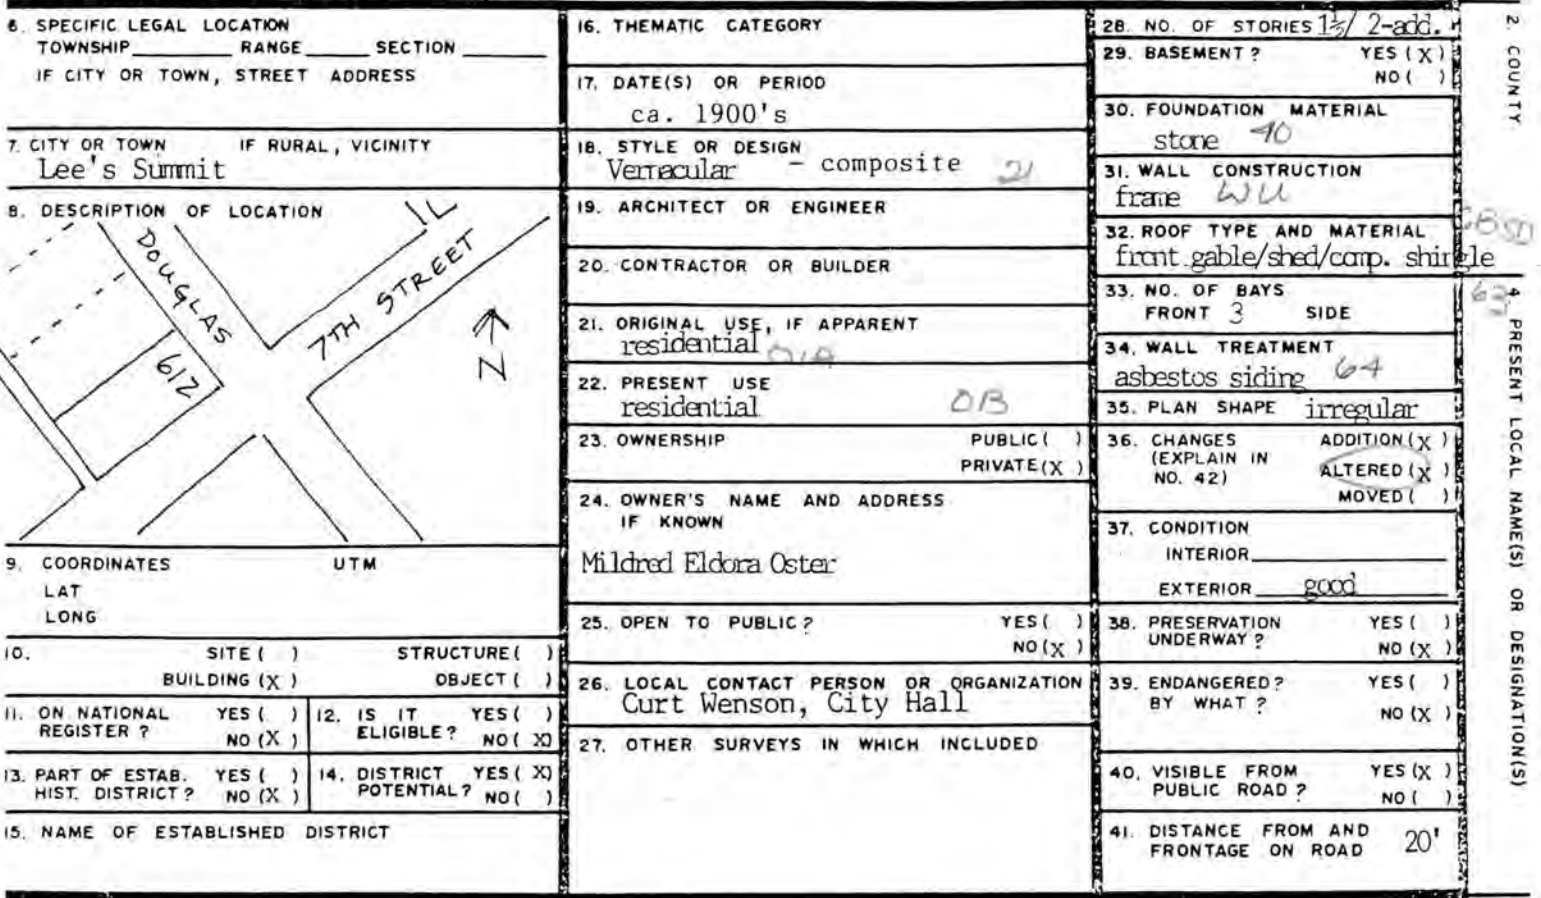 6. SPECIFIC LEGAL LOCATION
TOWNSHIP RANGE SECTION
IF CITY OR TOWN, STREET ADDRESS
7. CITY OR TOWN IF RURAL, VICINITY
Lee's Summit
8. DESCRIPTION OF LOCATION
DOUGLAS
7TH STREET
612
N
9. COORDINATES UTM
LAT
LONG
10. SITE ( ) STRUCTURE ( )
BUILDING (X) OBJECT ( )
11. ON NATIONAL REGISTER ? YES ( ) NO (X)
12. IS IT ELIGIBLE? YES ( ) NO ( X)
13. PART OF ESTAB. HIST. DISTRICT ? YES ( ) NO (X)
14. DISTRICT POTENTIAL? YES ( X) NO ( )
15. NAME OF ESTABLISHED DISTRICT
16. THEMATIC CATEGORY
17. DATE(S) OR PERIOD
ca. 1900's
18. STYLE OR DESIGN
Vernacular - composite 21
19. ARCHITECT OR ENGINEER
20. CONTRACTOR OR BUILDER
21. ORIGINAL USE, IF APPARENT
residential 01A
22. PRESENT USE
residential OB
23. OWNERSHIP PUBLIC ( )
PRIVATE (X )
24. OWNER'S NAME AND ADDRESS
IF KNOWN
Mildred Eldora Oster
25. OPEN TO PUBLIC? YES ( )
NO (X )
26. LOCAL CONTACT PERSON OR ORGANIZATION
Curt Wenson, City Hall
27. OTHER SURVEYS IN WHICH INCLUDED
28. NO. OF STORIES 1½/ 2-add.
29. BASEMENT ? YES (X)
NO ( )
30. FOUNDATION MATERIAL
stone 40
31. WALL CONSTRUCTION
frame WU
32. ROOF TYPE AND MATERIAL
front gable/shed/comp. shingle
63
33. NO. OF BAYS
FRONT 3 SIDE
34. WALL TREATMENT
asbestos siding 64
35. PLAN SHAPE irregular
36. CHANGES ADDITION (X )
(EXPLAIN IN
NO. 42) ALTERED (X )
MOVED ( )
37. CONDITION
INTERIOR
EXTERIOR good
38. PRESERVATION YES ( )
UNDERWAY? NO (X )
39. ENDANGERED? YES ( )
BY WHAT ? NO (X )
40. VISIBLE FROM YES (X )
PUBLIC ROAD ? NO ( )
41. DISTANCE FROM AND
FRONTAGE ON ROAD 20'
2. COUNTY
4. PRESENT LOCAL NAME(S) OR DESIGNATION(S)